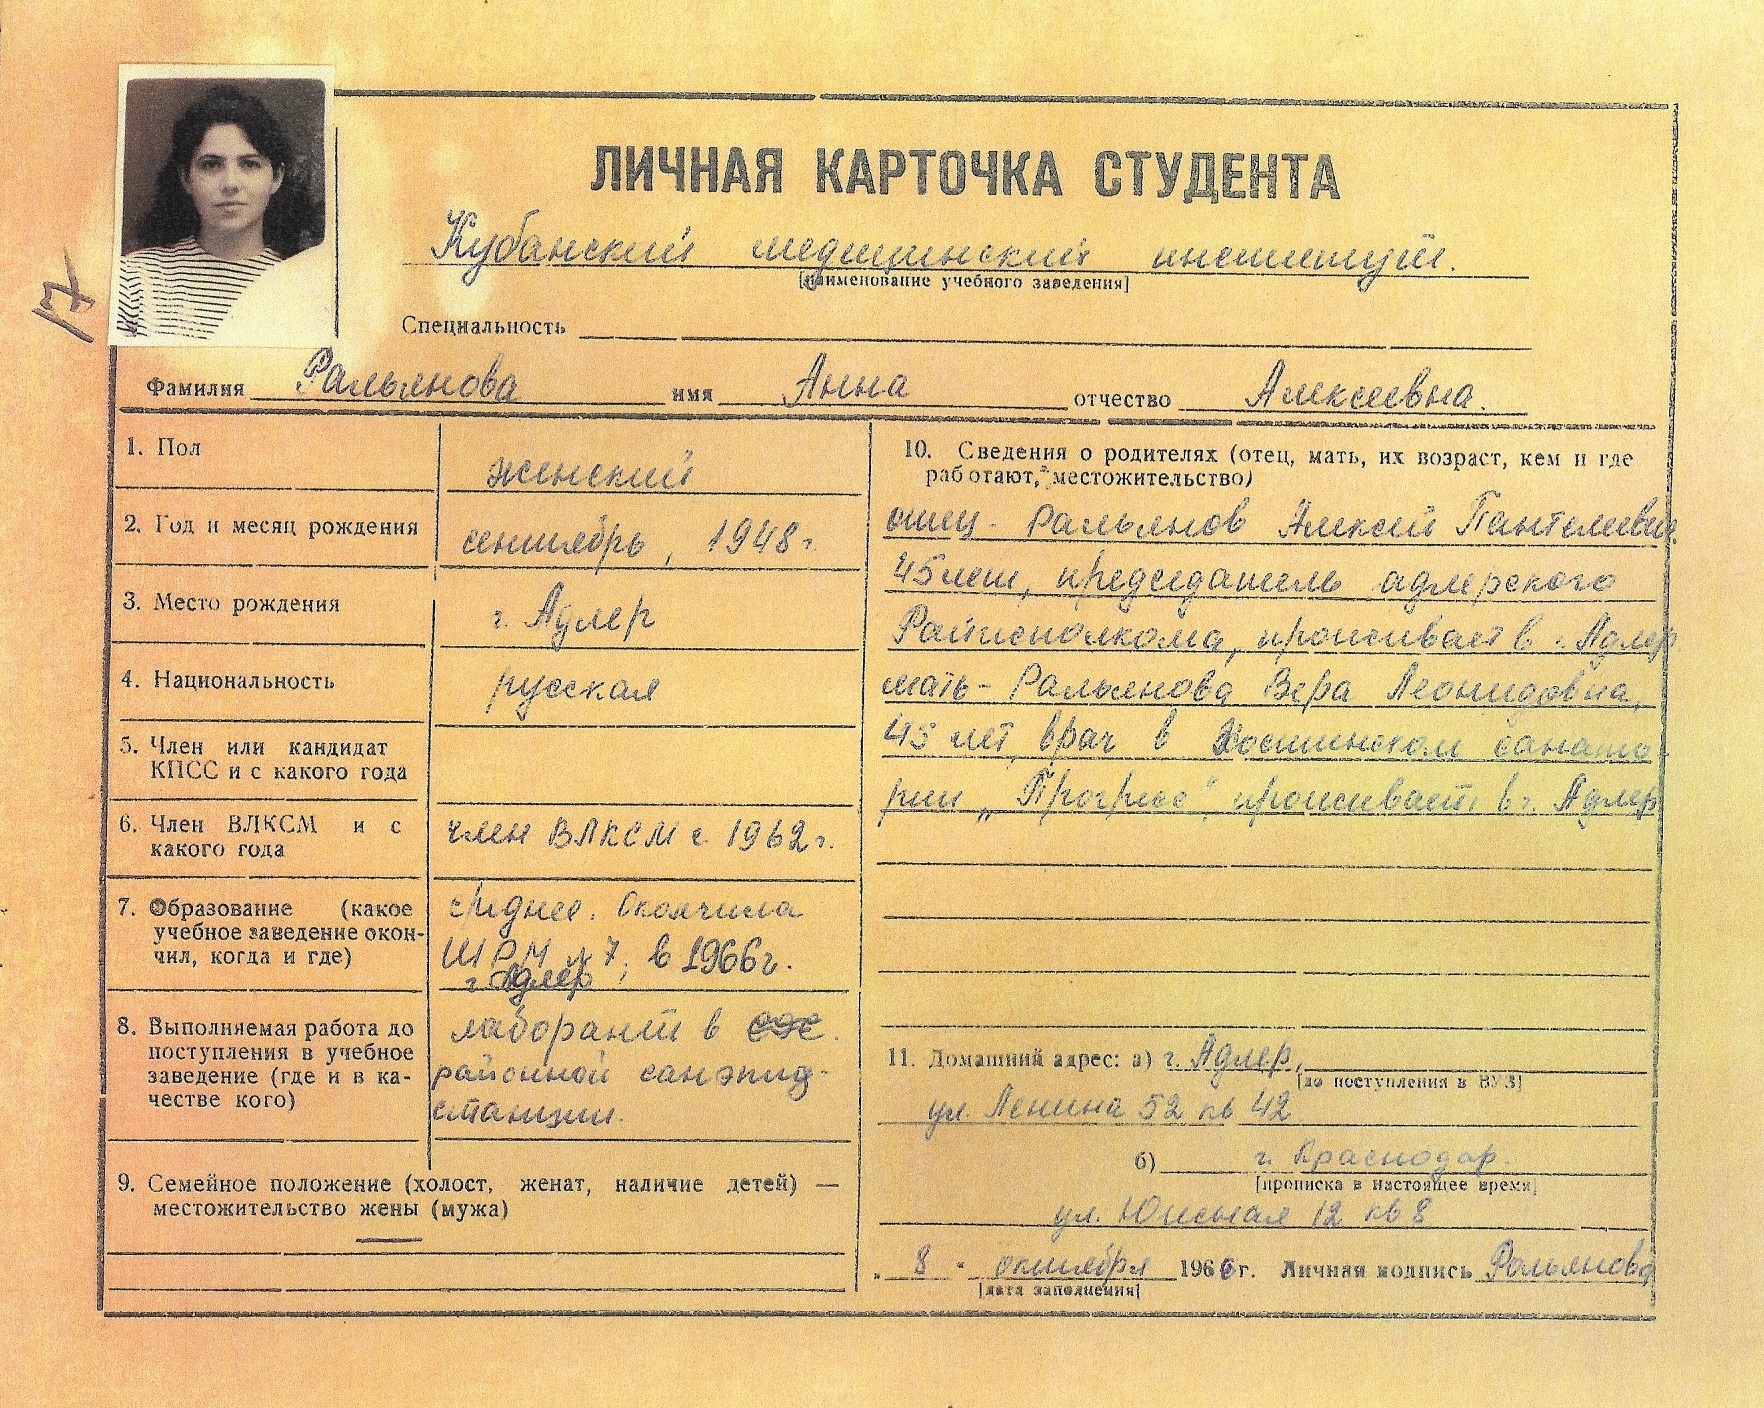 17
ЛИЧНАЯ КАРТОЧКА СТУДЕНТА
Кубанский медицинский институт.
[наименование учебного заведения]
Специальность
Фамилия Ральянова имя Анна отчество Алексеевна.
1. Пол
женский
2. Год и месяц рождения
сентябрь, 1948г.
3. Место рождения
г. Адлер
4. Национальность
русская
5. Член или кандидат
КПСС и с какого года
6. Член ВЛКСМ и с
какого года
член ВЛКСМ с 1962г.
7. Образование (какое
учебное заведение окон-
чил, когда и где)
среднее. Окончила
ШРМ №7, в 1966г.
г. Адлер
8. Выполняемая работа до
поступления в учебное
заведение (где и в ка-
честве кого)
лаборант в сэс.
районной санэпид-
станции.
9. Семейное положение (холост, женат, наличие детей) —
местожительство жены (мужа)
—
10. Сведения о родителях (отец, мать, их возраст, кем и где
работают, местожительство)
отец - Ральянов Алексей Пантелеевич
45 лет, председатель адлерского
Райисполкома, проживает в г. Адлер
мать - Ральянова Вера Леонидовна,
45 лет, врач в Хостинском санато-
рии „Прогресс“, проживает в г. Адлер
11. Домашний адрес: а) г. Адлер,
[до поступления в ВУЗ]
ул. Ленина 52 кв 42
б) г. Краснодар.
[прописка в настоящее время]
ул. Южная 12 кв 8
„ 8 " октября 1966г. Личная подпись Ральянова
[дата заполнения]